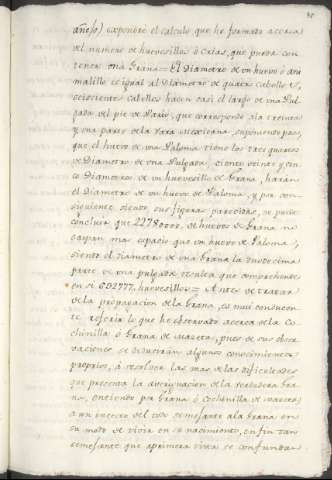 añejo) expondré el calculo que he formado acerca
del numero de huevesillos ó crias, que pueda con
tener una Grana = El Diametro de un huevo ó ara
malillo es igual al Diametro de quatro cabellos,
seiscientos cabellos hacen casi el largo de una Pul
gada del pie de Paris, que corresponde á la treinta
y una parte de la Vara Mexicana, suponiendo pues,
que el huevo de una Paloma tiene los tres quartos
de Diametro de una Pulgada, ciento veinte y cin
co Diametros de un huevecillo de Grana, harán
el Diametro de un huevo de Paloma, y por con
siguiente siendo sus figuras parecidas, se puede
concluir que de huevos de Grana no
ocupan mas espacio que un huevo de Paloma,
siendo el Diametro de una Grana la duodecima
parte de una pulgada resulta que comprehende
en sí huevesillos = Antes de tratar
de la propagacion de la Grana, es mui conducen
te, referir lo que he observado acerca de la Co
chinilla ó Grana de Mazeta, pues de sus obser
vaciones se deducirán algunos conocimientos
proprios, á resolver las mas de las dificultades
que presenta la averiguacion de la verdadera Gra
na, entiendo por Grana ó Cochinilla de mazeta
a un insecto del todo semejante á la Grana en
su modo de vivir en su nacimiento, en fin tan
semejante que aprimera vista se confunda